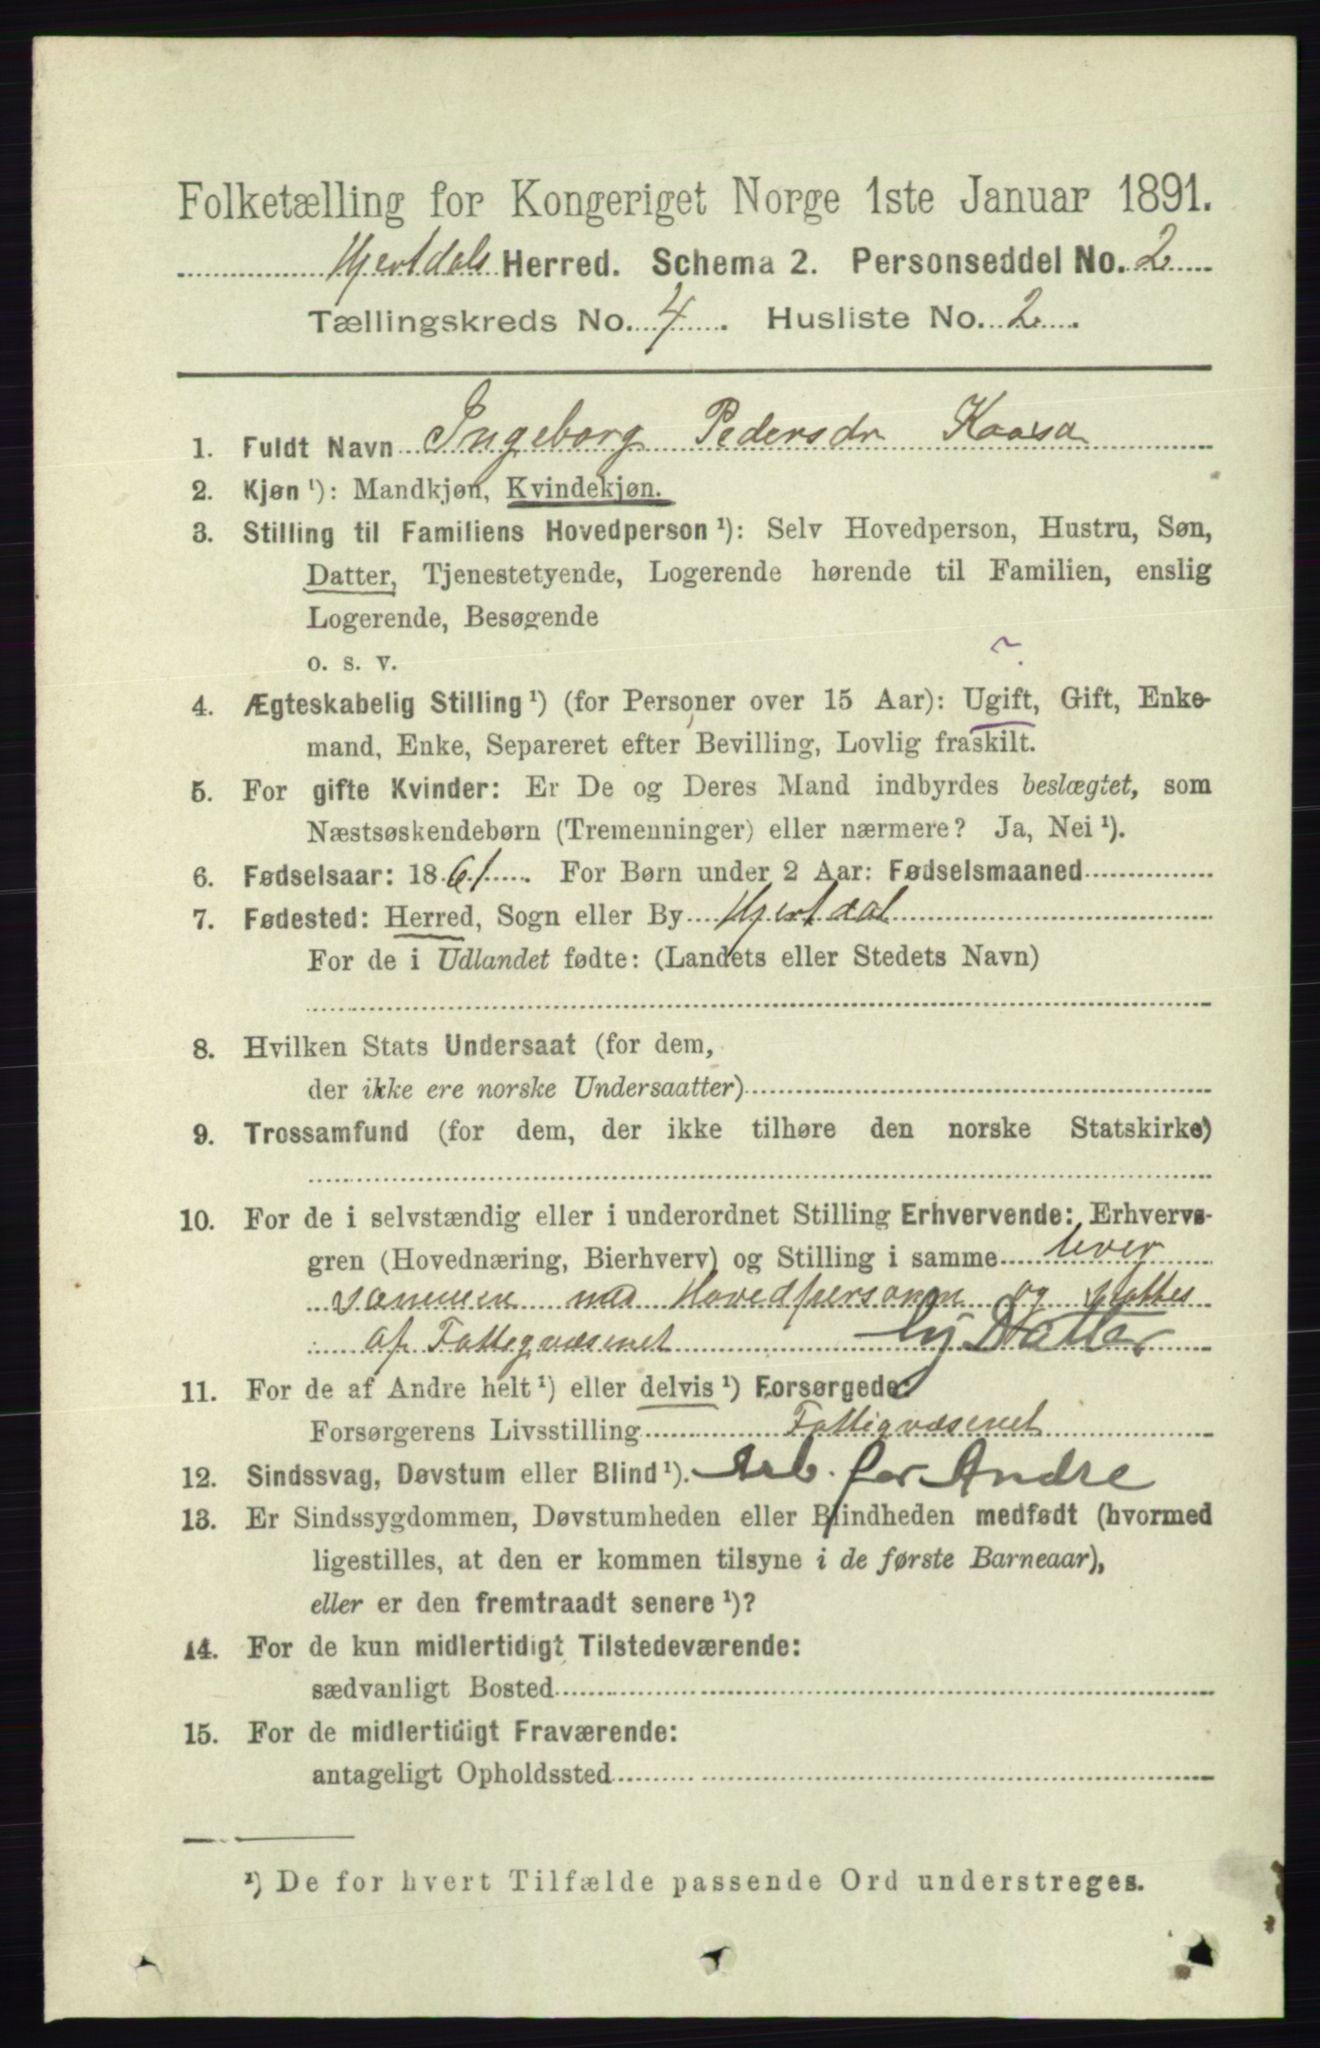 Folketælling for Kongeriget Norge 1ste Januar 1891.
Hjertdals Herred. Schema 2. Personseddel No. 2
Tællingskreds No. 4. Husliste No. 2.
1. Fuldt Navn Ingeborg Pedersdr Kaasa
2. Kjøn ¹): Mandkjøn, Kvindekjøn.
3. Stilling til Familiens Hovedperson ¹): Selv Hovedperson, Hustru, Søn,
Datter, Tjenestetyende, Logerende hørende til Familien, enslig
Logerende, Besøgende
o. s. v.
?
4. Ægteskabelig Stilling ¹) (for Personer over 15 Aar): Ugift, Gift, Enke-
mand, Enke, Separeret efter Bevilling, Lovlig fraskilt.
5. For gifte Kvinder: Er De og Deres Mand indbyrdes beslægtet, som
Næstsøskendebørn (Tremenninger) eller nærmere? Ja, Nei ¹).
6. Fødselsaar: 1861. For Børn under 2 Aar: Fødselsmaaned
7. Fødested: Herred, Sogn eller By Hjertdal
For de i Udlandet fødte: (Landets eller Stedets Navn)
8. Hvilken Stats Undersaat (for dem,
der ikke ere norske Undersaatter)
9. Trossamfund (for dem, der ikke tilhøre den norske Statskirke)
10. For de i selvstændig eller i underordnet Stilling Erhvervende: Erhvervs-
gren (Hovednæring, Bierhverv) og Stilling i samme lever
sammen med Hovedpersonen og støttes
af Fattigvæsenet Hj Datter
11. For de af Andre helt ¹) eller delvis ¹) Forsørgede:
Forsørgerens Livsstilling Fattigvæsenet
12. Sindssvag, Døvstum eller Blind ¹). Arb. for Andre
13. Er Sindssygdommen, Døvstumheden eller Blindheden medfødt (hvormed
ligestilles, at den er kommen tilsyne i de første Barneaar),
eller er den fremtraadt senere ¹)?
14. For de kun midlertidigt Tilstedeværende:
sædvanligt Bosted
15. For de midlertidigt Fraværende:
antageligt Opholdssted
¹) De for hvert Tilfælde passende Ord understreges.